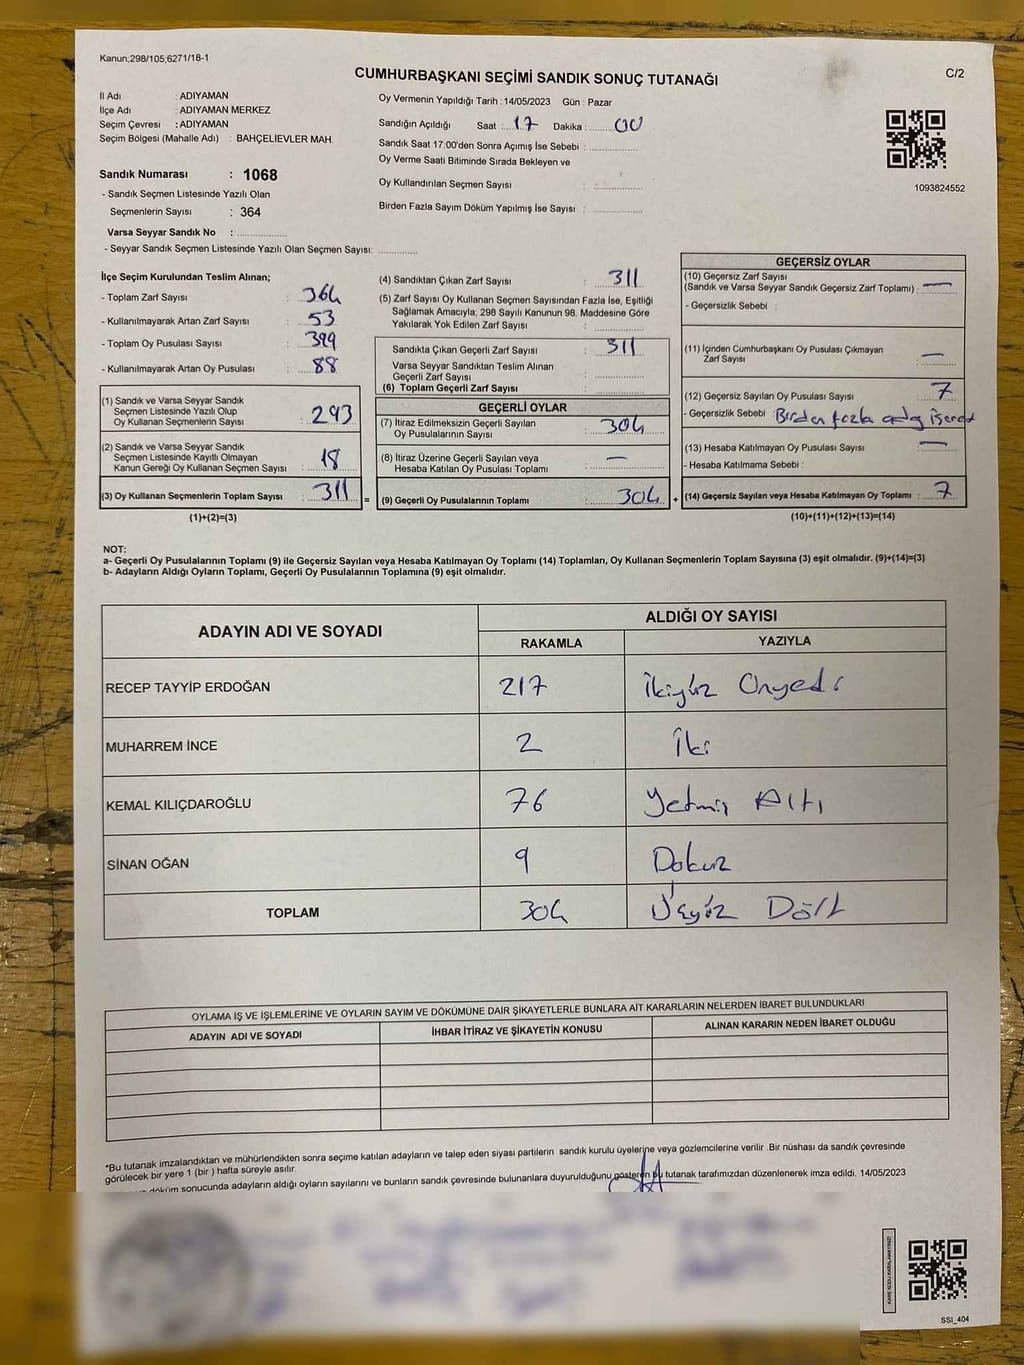 Kanun;298/105,6271/18-1
CUMHURBAŞKANI SEÇİMİ SANDIK SONUÇ TUTANAĞI
C/2
İl Adı : ADIYAMAN
İlçe Adı : ADIYAMAN MERKEZ
Seçim Çevresi : ADIYAMAN
Seçim Bölgesi (Mahalle Adı) : BAHÇELİEVLER MAH.
Sandık Numarası : 1068
- Sandık Seçmen Listesinde Yazılı Olan
Seçmenlerin Sayısı : 364
Varsa Seyyar Sandık No : ..............
- Seyyar Sandık Seçmen Listesinde Yazılı Olan Seçmen Sayısı: ............
Oy Vermenin Yapıldığı Tarih : 14/05/2023 Gün : Pazar
Sandığın Açıldığı Saat : 17 Dakika : 00
Sandık Saat 17:00'den Sonra Açımış İse Sebebi : ..............
Oy Verme Saati Bitiminde Sırada Bekleyen ve
Oy Kullandırılan Seçmen Sayısı : ..............
Birden Fazla Sayım Döküm Yapılmış İse Sayısı : ..............
1093824552
İlçe Seçim Kurulundan Teslim Alınan;
- Toplam Zarf Sayısı : 364
- Kullanılmayarak Artan Zarf Sayısı : 53
- Toplam Oy Pusulası Sayısı : 399
- Kullanılmayarak Artan Oy Pusulası : 88
(1) Sandık ve Varsa Seyyar Sandık
Seçmen Listesinde Yazılı Olup
Oy Kullanan Seçmenlerin Sayısı : 293
(2) Sandık ve Varsa Seyyar Sandık
Seçmen Listesinde Kayıtlı Olmayan
Kanun Gereği Oy Kullanan Seçmen Sayısı : 18
(3) Oy Kullanan Seçmenlerin Toplam Sayısı : 311 =
(1)+(2)=(3)
(4) Sandıktan Çıkan Zarf Sayısı : 311
(5) Zarf Sayısı Oy Kullanan Seçmen Sayısından Fazla İse, Eşitliği
Sağlamak Amacıyla; 298 Sayılı Kanunun 98. Maddesine Göre
Yakılarak Yok Edilen Zarf Sayısı : ..............
Sandıkta Çıkan Geçerli Zarf Sayısı : 311
Varsa Seyyar Sandıktan Teslim Alınan
Geçerli Zarf Sayısı : ..............
(6) Toplam Geçerli Zarf Sayısı : ..............
GEÇERLİ OYLAR
(7) İtiraz Edilmeksizin Geçerli Sayılan
Oy Pusulalarının Sayısı : 304
(8) İtiraz Üzerine Geçerli Sayılan veya
Hesaba Katılan Oy Pusulası Toplamı : —
(9) Geçerli Oy Pusulalarının Toplamı : 304 +
GEÇERSİZ OYLAR
(10) Geçersiz Zarf Sayısı
(Sandık ve Varsa Seyyar Sandık Geçersiz Zarf Toplamı) : —
- Geçersizlik Sebebi :
(11) İçinden Cumhurbaşkanı Oy Pusulası Çıkmayan
Zarf Sayısı : —
(12) Geçersiz Sayılan Oy Pusulası Sayısı : 7
- Geçersizlik Sebebi : Birden fazla aday işaret
(13) Hesaba Katılmayan Oy Pusulası Sayısı : —
- Hesaba Katılmama Sebebi :
(14) Geçersiz Sayılan veya Hesaba Katılmayan Oy Toplamı : 7
(10)+(11)+(12)+(13)=(14)
NOT:
a- Geçerli Oy Pusulalarının Toplamı (9) ile Geçersiz Sayılan veya Hesaba Katılmayan Oy Toplamı (14) Toplamları, Oy Kullanan Seçmenlerin Toplam Sayısına (3) eşit olmalıdır. (9)+(14)=(3)
b- Adayların Aldığı Oyların Toplamı, Geçerli Oy Pusulalarının Toplamına (9) eşit olmalıdır.
ADAYIN ADI VE SOYADI
ALDIĞI OY SAYISI
RAKAMLA YAZIYLA
RECEP TAYYİP ERDOĞAN 217 İkiyüz Onyedi
MUHARREM İNCE 2 İki
KEMAL KILIÇDAROĞLU 76 Yetmiş Altı
SİNAN OĞAN 9 Dokuz
TOPLAM 304 Üçyüz Dört
OYLAMA İŞ VE İŞLEMLERİNE VE OYLARIN SAYIM VE DÖKÜMÜNE DAİR ŞİKAYETLERLE BUNLARA AİT KARARLARIN NELERDEN İBARET BULUNDUKLARI
ADAYIN ADI VE SOYADI İHBAR İTİRAZ VE ŞİKAYETİN KONUSU ALINAN KARARIN NEDEN İBARET OLDUĞU
*Bu tutanak imzalandıktan ve mühürlendikten sonra seçime katılan adayların ve talep eden siyasi partilerin sandık kurulu üyelerine veya gözlemcilerine verilir. Bir nüshası da sandık çevresinde
görülecek bir yere 1 (bir) hafta süreyle asılır.
döküm sonucunda adayların aldığı oyların sayılarını ve bunların sandık çevresinde bulunanlara duyurulduğunu gösteren bu tutanak tarafımızdan düzenlenerek imza edildi. 14/05/2023
SSİ_404